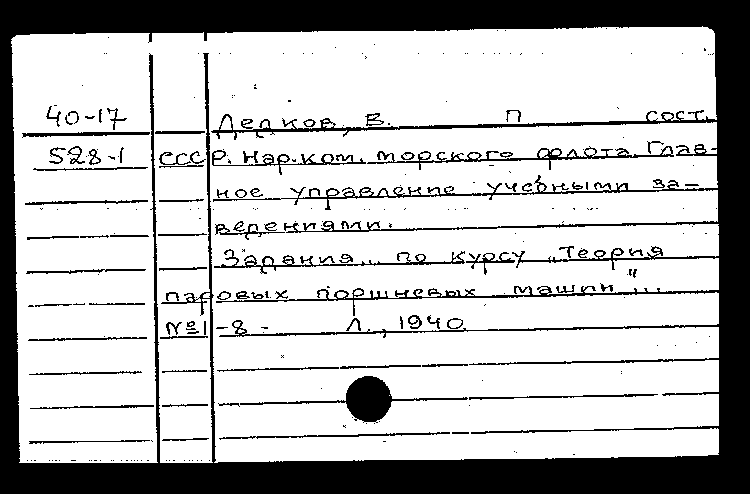 40-17 Дедков, В. П сост.
528-1 СССР. Нар.ком. морского флота. Глав-
ное управление учебными за-
ведениями.
Задания... по курсу „Теория
паровых поршневых машин"...
№1-8- Л., 1940